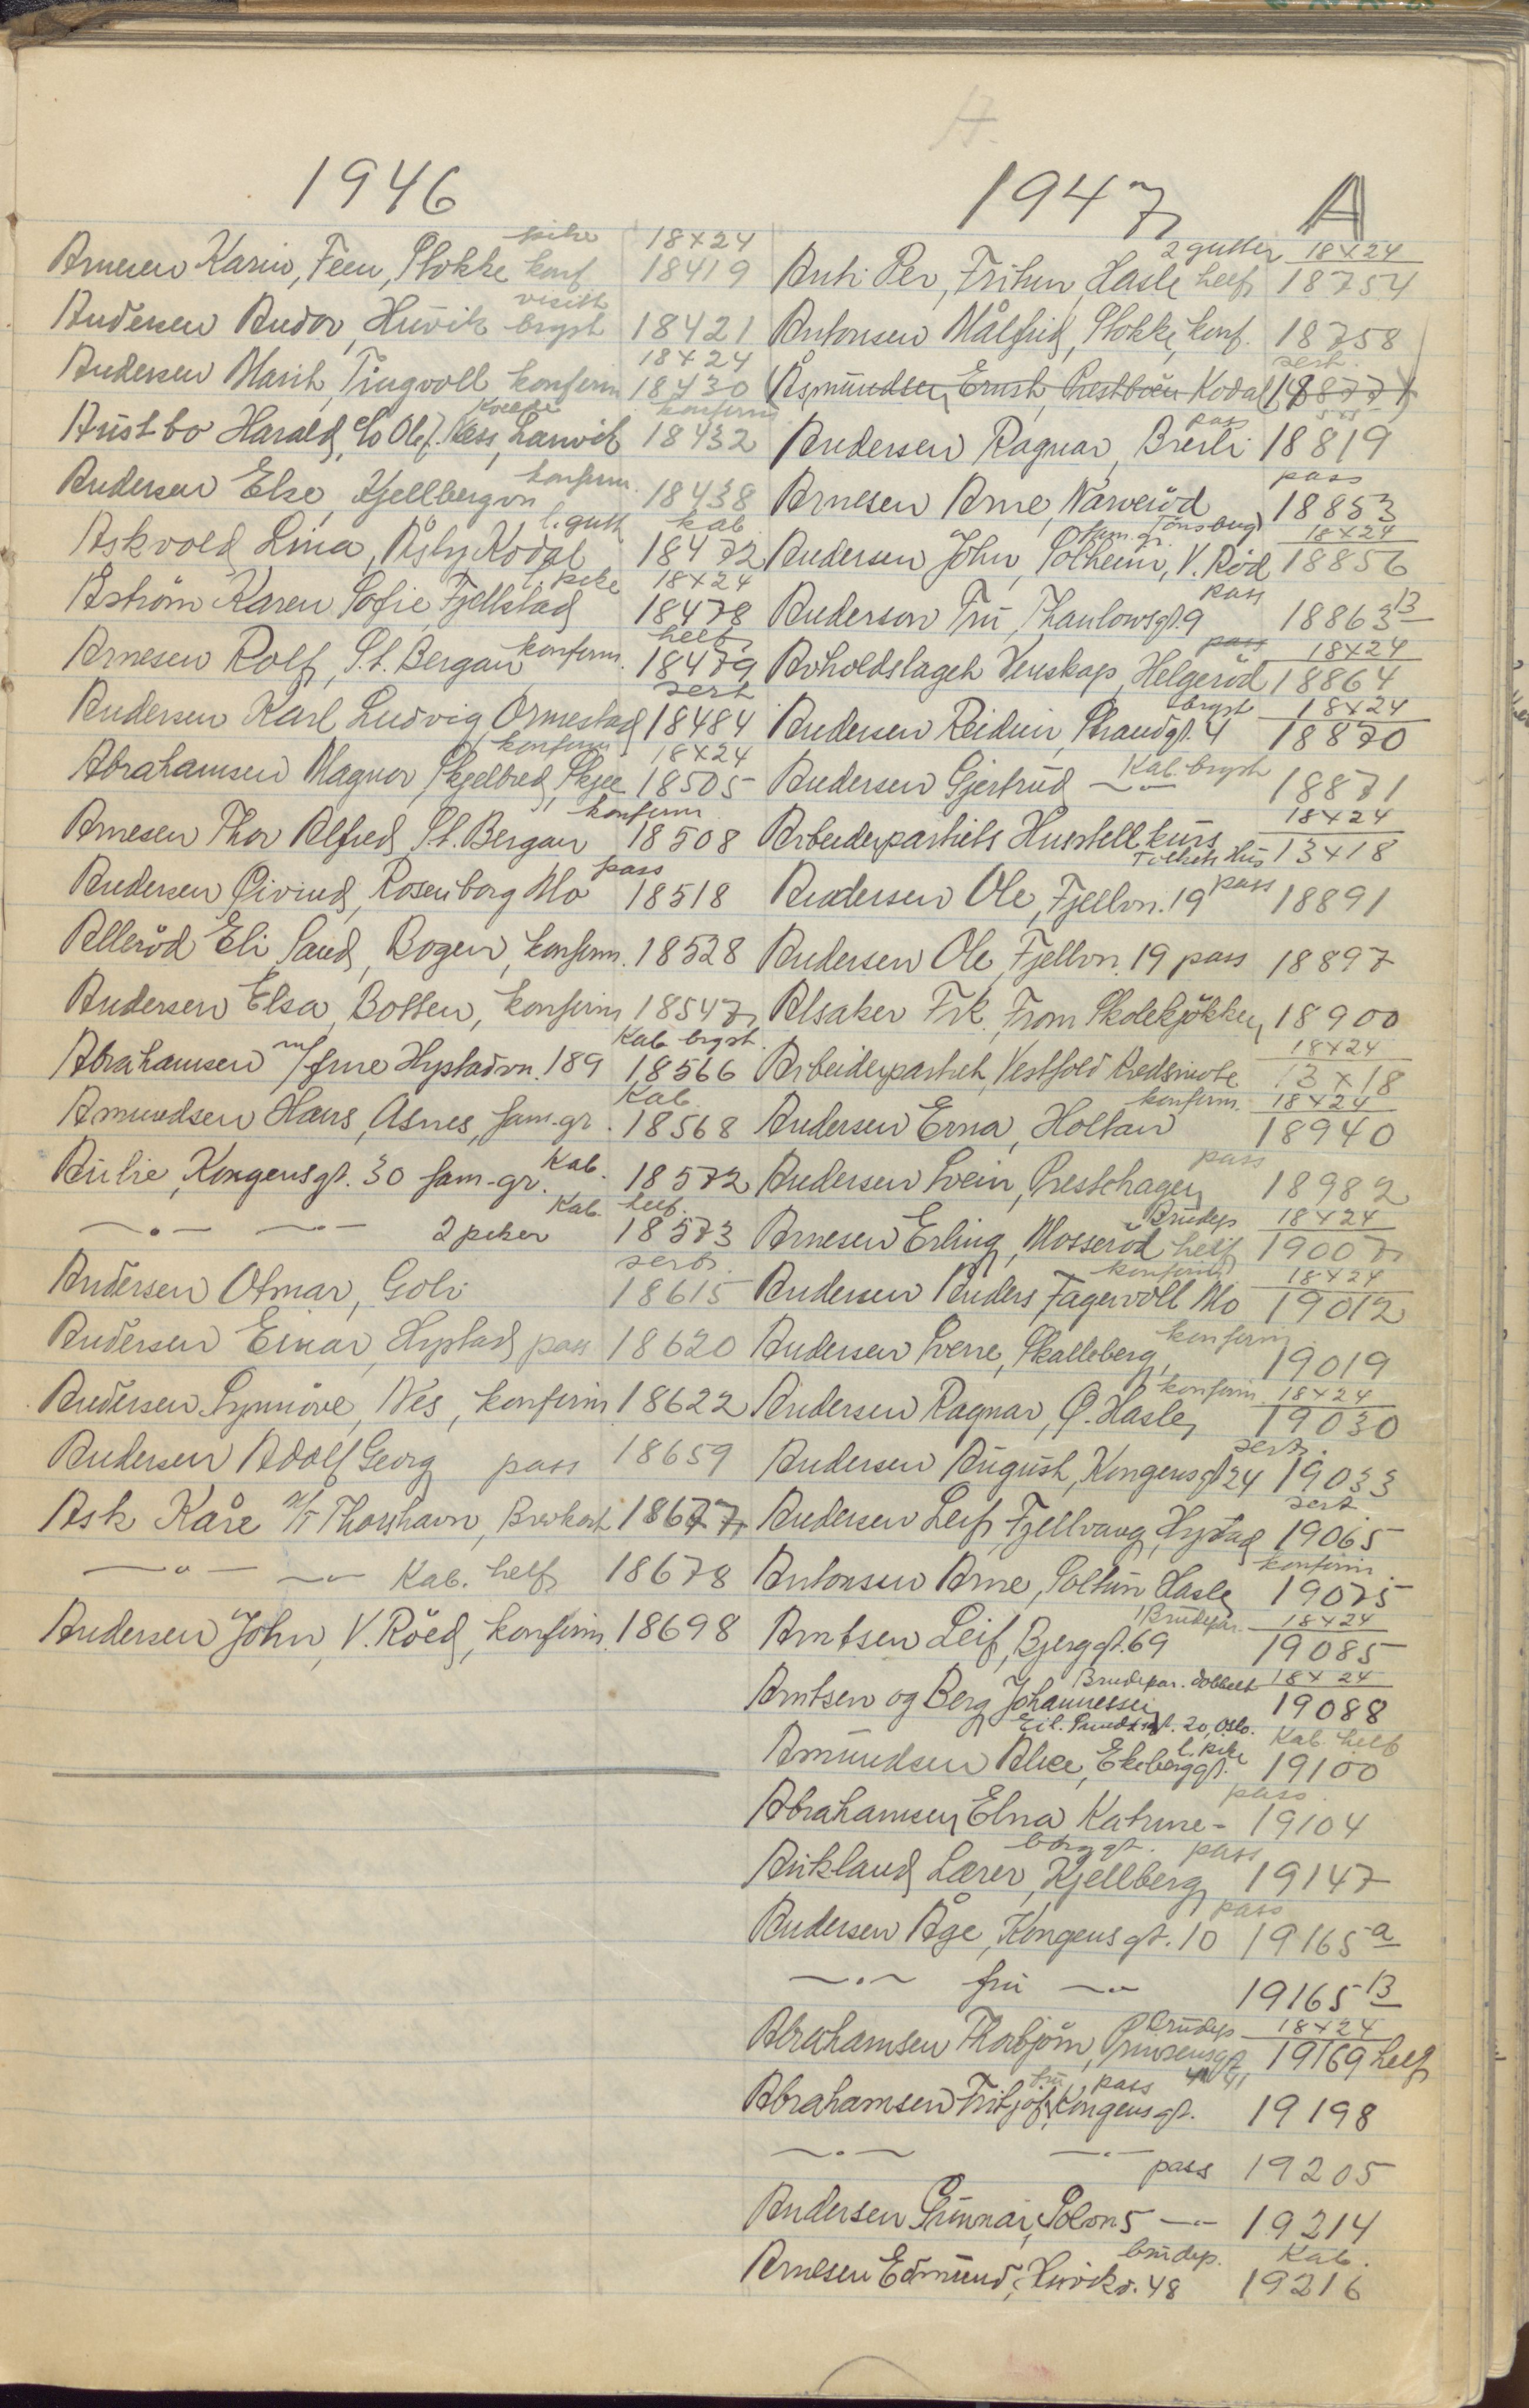 A.
1946
pike 18x24
Arnesen Karin, Feen, Stokke konf 18419
visitk
Andersen Andor, Huvik bryst 18421
18x24
Andersen Marit, Tingvoll konfirm 18430
Kvelde konfirm
Austbo Harald, c/o Olaf. Næss, Larvik 18432
Andersen Else, Kjellbergvn konfirm. 18438
l. gutt kab
Askvold Lina, Åsly, Kodal 18472
l. pike 18x24
Åström Karen Sofie, Fjellstad 18478
helf
Arnesen Rolf, St. Bergan konfirm. 18479
sert
Andersen Karl Ludvig, Ormestad 18484
konfirm 18x24
Abrahamsen Magnor, Skjelbred, Skjee 18505
konfirm
Arnesen Thor Alfred, St. Bergan 18508
pass
Andersen Øivind, Rosenborg Mo 18518
Alleröd Eli Sand, Bogen, konfirm. 18528
Andersen Elsa, Botten, konfirm 18547
Kab bryst.
Abrahamsen m/frue Hystadvn. 189 18566
Kab.
Amundsen Hans, Asnes, fam.gr. 18568
Aulie, Kongensgt. 30 fam-gr. Kab. 18572
Kab. helf.
—.— —.— 2 piker 18573
sert.
Andersen Otmar, Goli 18615
Andersen Einar, Hystad pass 18620
Andersen Synnöve, Nes, konfirm 18622
Andersen Adolf Georg pass 18659
Ask Kåre M/T Thorshavn, Brevkort 18677
—.— —.— Kab. helf 18678
Andersen John, V. Röed, konfirm 18698
1947 A
2 gutter 18x24
Anti Per, Frihm, Hasle helf 18754
Antonsen Målfrid, Stokke, konf. 18758
sert.
Åsmundsen, Ernst, Prestbøen Kodal 18877
pass
Andersen Ragnar, Breili 18819
pass
Arnesen Arne, Narveröd 18853
fam.gr. Tönsberg 18x24
Andersen John, Solheim, V. Röd 18856
pass
Anderson Fru, Thaulowsgt. 9 18863 B
pass 18x24
Avholdslaget Venskap, Helgeröd 18864
bryst 18x24
Andersen Reidun, Strandgt. 4 18870
Kab. bryst
Andersen Gjertrud —.— 18871
18x24
Arbeiderpartiets Husstellkurs 13x18
Folkets Hus
Andersen Ole, Fjellvn. 19 pass 18891
Andersen Ole, Fjellvn. 19 pass 18897
Alsaker Frk. From Skolekjökken 18900
18x24
Arbeiderpartiet, Vestfold Kredsmøte 13x18
konfirm. 18x24
Andersen Erna, Holtan 18940
pass
Andersen Svein, Prestehagen 18982
Brudep 18x24
Arnesen Erling, Mosseröd helf 19007
konfirm 18x24
Andersen Anders Fagervoll Mo 19012
konfirm
Andersen Sverre, Skalleberg, 19019
konfirm 18x24
Andersen Ragnar, Ø. Hasle, 19030
sert.
Andersen August, Kongensgt 24 19033
sert
Andersen Leif, Fjellvang, Hystad 19065
konfirm.
Antonsen Arne, Soltun Hasle 19075
Brudepar. 18x24
Arntsen Leif, Bjerggt. 69 19085
Brudepar. dobbelt 18x24
Arntsen og Berg Johannessen 19088
Eil. Sundtsgt. 20, Oslo. Kab. helf
l. pike
Amundsen Alice, Ekeberggt. 19100
pass.
Abrahamsen Elna Katrine - 19104
pass
Aukland, Lærer, Kjellberg 19147
pass
Andersen Åge, Kongensgt. 10 19165 a
—.— fru —.— 19165 B
Brudep 18x24
Abrahamsen Thorbjörn, Prinsensgt 19169 helf
fru pass
Abrahamsen Fritjof, Kongensgt. 19198
—.— —.— pass 19205
Andersen Gunnar, Solvn 5 —.— 19214
brudep. Kab.
Arnesen Edmund, Huvikv. 48 19216